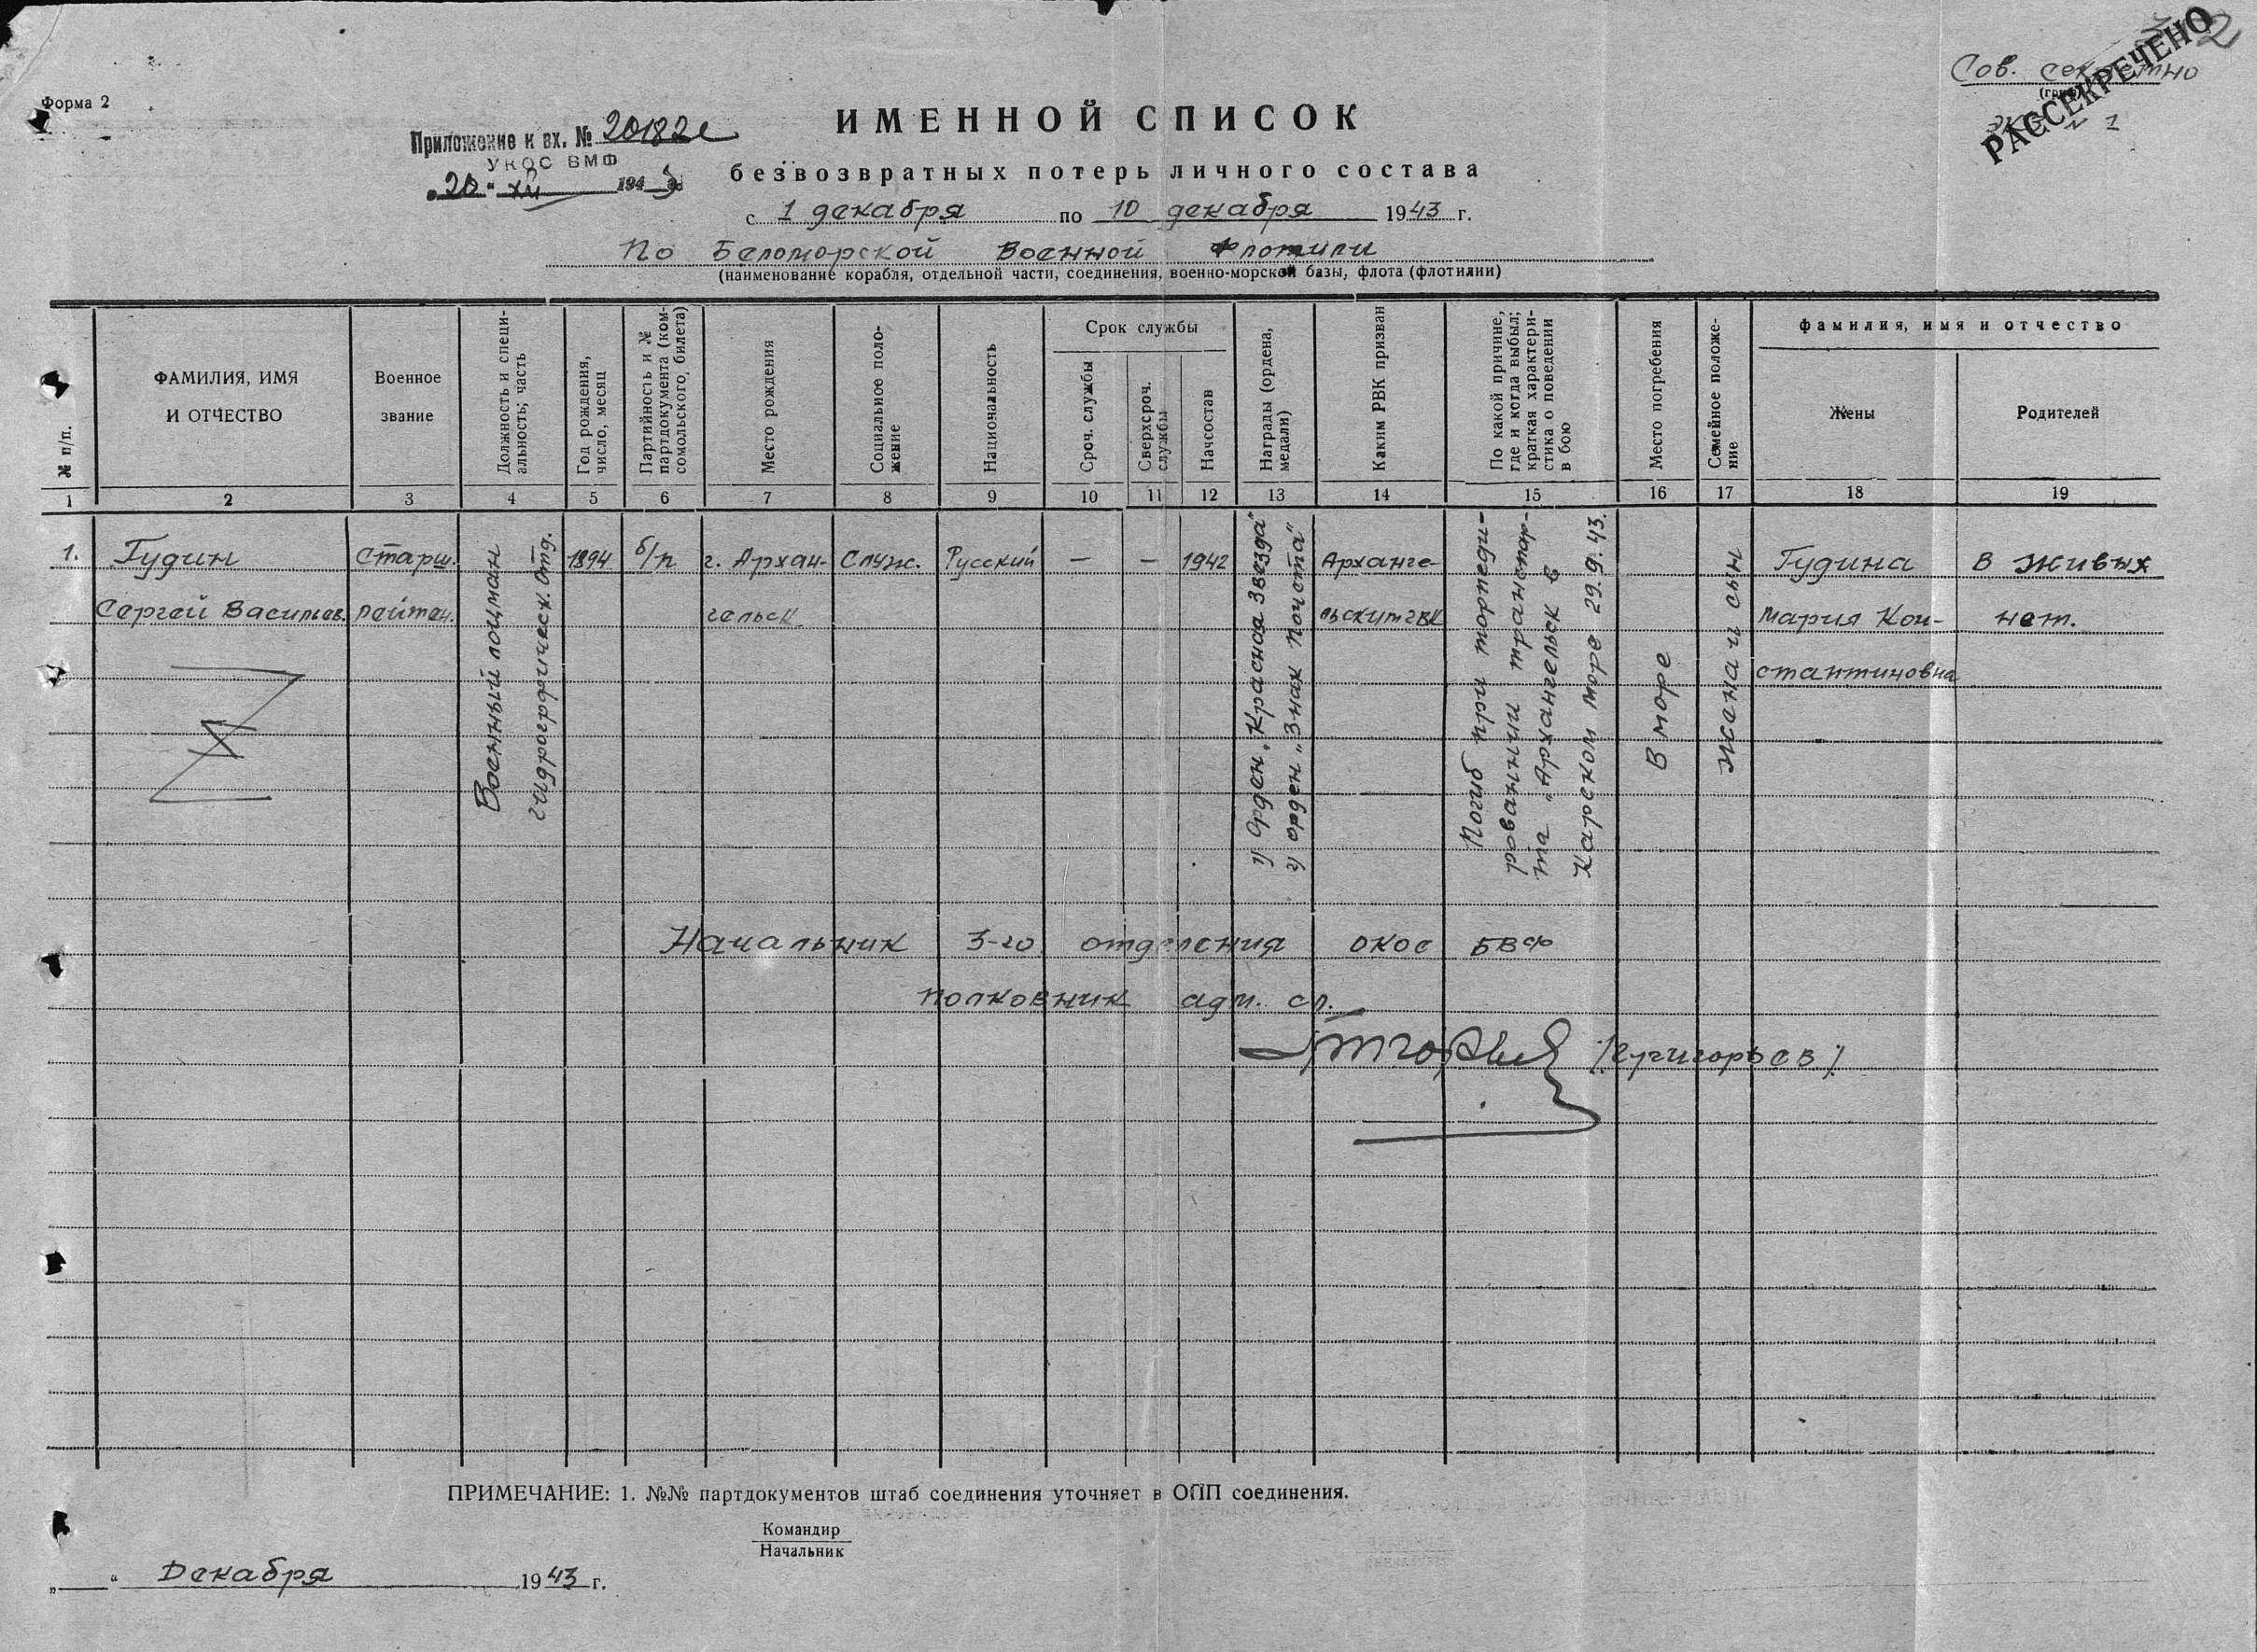 Форма 2
Сов. секретно
РАССЕКРЕЧЕНО
Приложение к вх. № 20182с
УКОС ВМФ
"20" XII 1943
ИМЕННОЙ СПИСОК
безвозвратных потерь личного состава
с 1 декабря по 10 декабря 1943 г.
По Беломорской Военной Флотили
(наименование корабля, отдельной части, соединения, военно-морской базы, флота (флотилии)
№ п/п.
ФАМИЛИЯ, ИМЯ
И ОТЧЕСТВО
Военное
звание
Должность и специ-
альность; часть
Год рождения,
число, месяц
Партийность и №
партдокумента (ком-
сомольского, билета)
Место рождения
Социальное поло-
жение
Национальность
Срок службы
Сроч. службы
Сверхсроч.
службы
Начсостав
Награды (ордена,
медали)
Каким РВК призван
По какой причине,
где и когда выбыл;
краткая характери-
стика о поведении
в бою
Место погребения
Семейное положе-
ние
фамилия, имя и отчество
Жены
Родителей
1 2 3 4 5 6 7 8 9 10 11 12 13 14 15 16 17 18 19
1.
Гудин
Сергей Васильев.
Старш.
лейтен.
Военный лоцман
гидрографическ. Отд.
1894
б/п
г. Архан-
гельск
Служ.
Русский
—
—
1942
1) Орден „Красная Звезда"
2) орден „Знак Почета"
Арханге-
льским ГВК
Погиб при торпеди-
рованнии транспор-
та „Архангельск в
Карском море 29.9.43.
В море
Жена и сын
Гудина
Мария Кон-
стантиновна
В живых
нет.
Начальник 3-го отделения ОКОС БВФ
полковник адм. сл.
/Григорьев/
ПРИМЕЧАНИЕ: 1. №№ партдокументов штаб соединения уточняет в ОПП соединения.
Командир
Начальник
„ “ Декабря 1943 г.